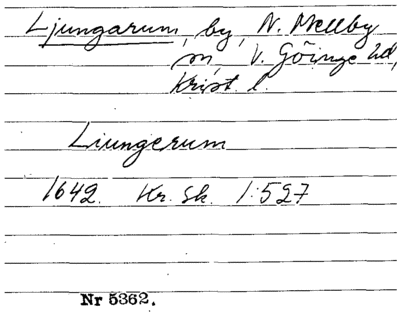 Ljungarum, by, N. Mellby
sn, V. Göinge hd,
Krist. l.
Liungerum
1642. Kr. Sk. 1:527
Nr 5362.